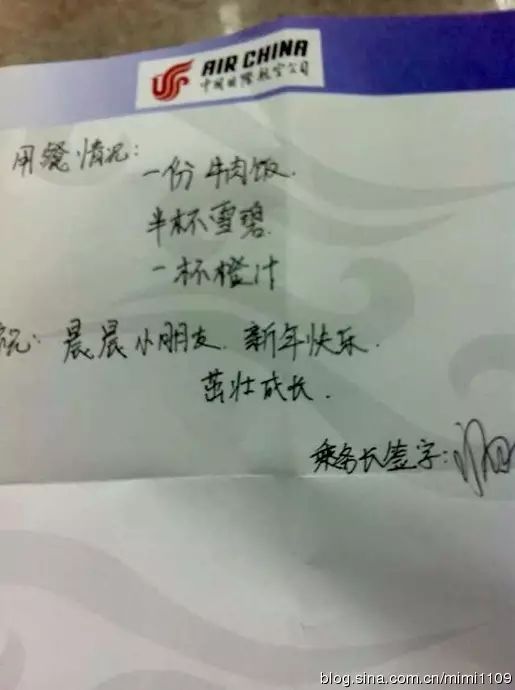 AIR CHINA
中国国际航空公司
用餐情况:
一份牛肉饭.
半杯雪碧.
一杯橙汁
况: 晨晨小朋友.新年快乐.
茁壮成长.
乘务长签字:
blog.sina.com.cn/mimi1109